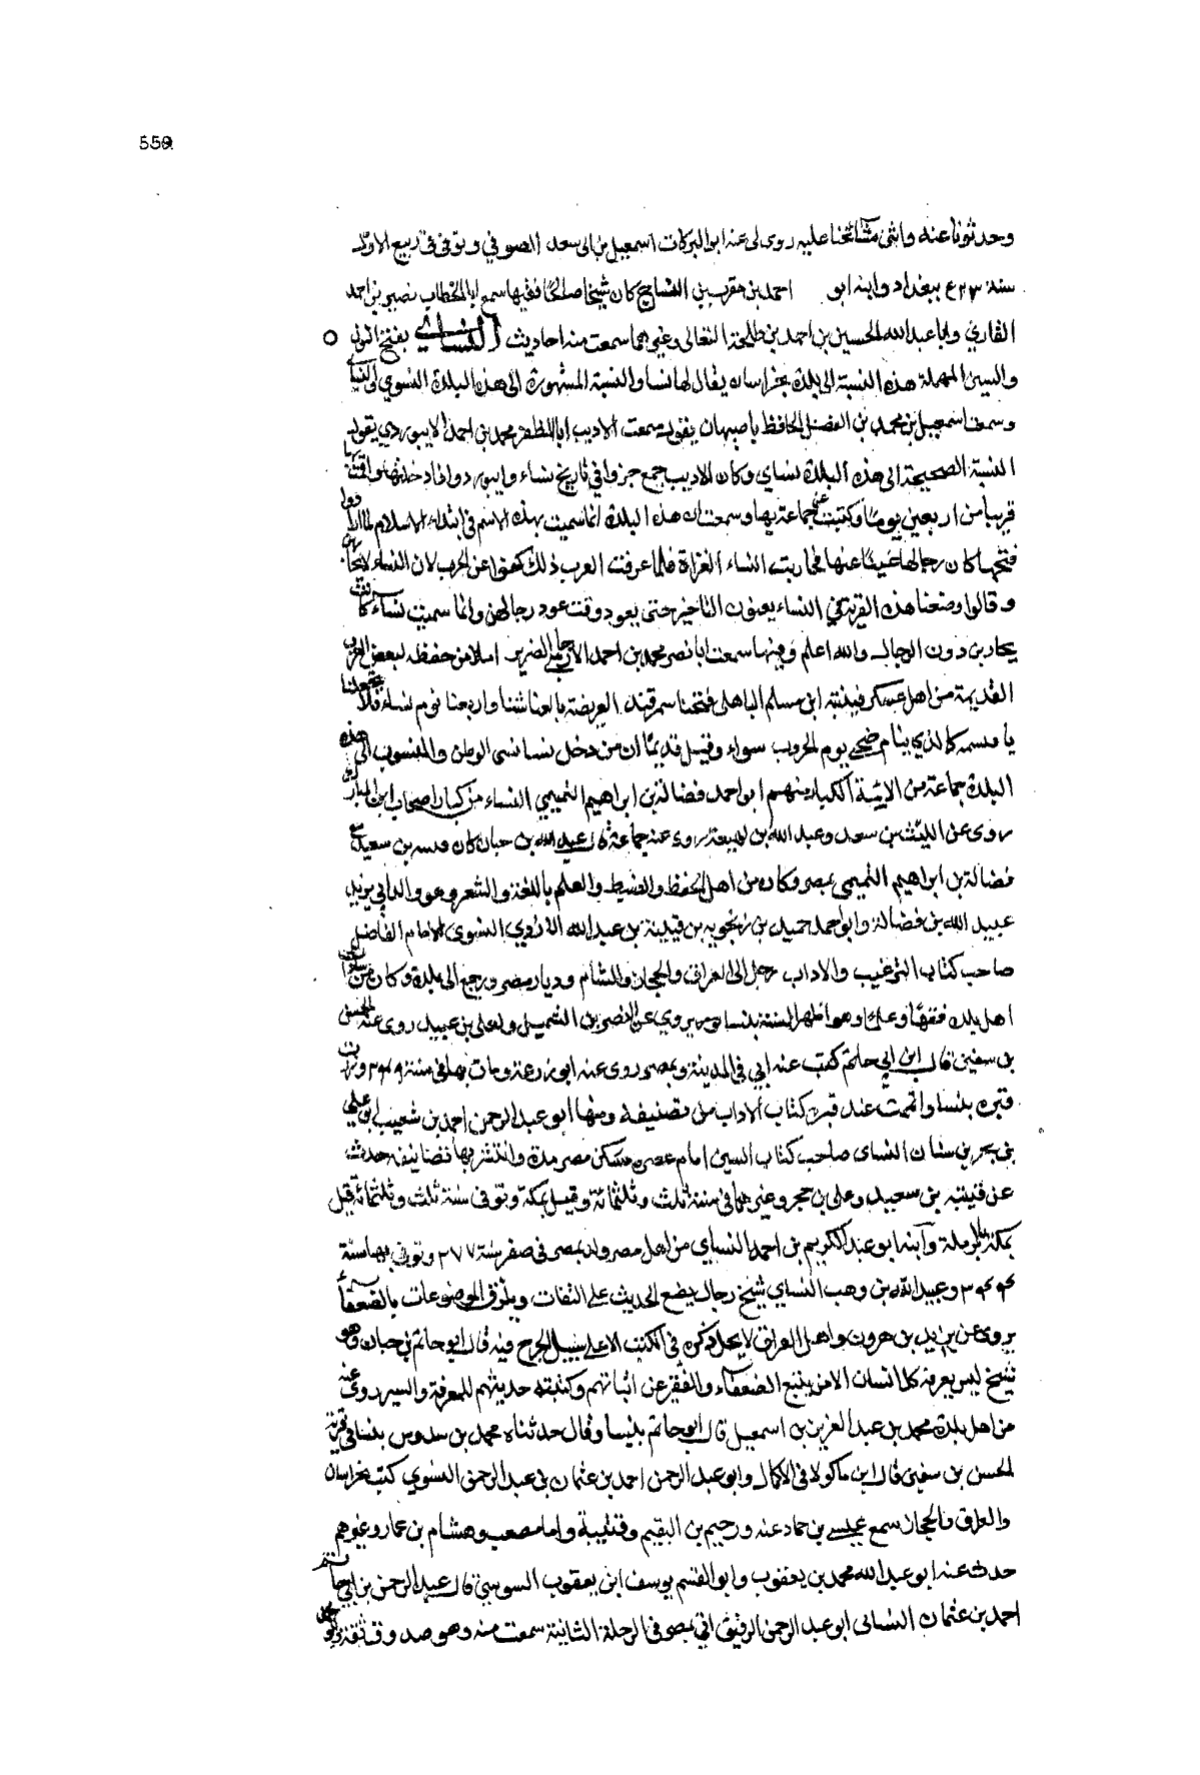 559
وحدثونا عنه واثنى مشائخنا عليه روى لى عنه ابو البركات اسمعيل بن ابى سعد الصوفي وتوفى فى ربيع الاول
سنة ٤٢٣ ببغداد وابنه ابو احمد بن مقرب بن النساج كان شيخا صالحا فقيها سمع ابا الخطاب نصر بن احمد
القاري وابا عبد الله الحسين بن احمد بن طلحة النعالى وغيرهما سمعت منه احاديث النسائي بفتح النون
والسين المهملة هذه النسبة الى بلدة بخراسان يقال لها نسا والنسبة المشهورة الى هذه البلدة النسوي والنسائي
وسمعت اسمعيل بن محمد بن الفضل الحافظ باصبهان يقول سمعت الاديب ابا المظفر محمد بن احمد الابيوردي يقول
النسبة الصحيحة الى هذه البلدة نساي وكان الاديب جمع جزوا في تاريخ نساء وابيورد وانا دخلتها واقمت بها
قريبا من اربعين يوما وكتبت عن جماعة بها وسمعت ان هذه البلدة انما سميت بهذا الاسم فى ابتداء الاسلام لما ارادوا
فتحها كان رجالها غيبا عنها فحاربت النساء الغزاة فلما عرفت العرب ذلك كفوا عن الحرب لان النساء لا يحاربن
وقالوا وضعنا هذه القرية في النساء يعنون التاخير حتى يعود وقت عود رجالهن وانما سميت نساء كانت
يحاربن دون الرجال والله اعلم وفيها سمعت ابا نصر محمد بن احمد الضرير املا من حفظه لبعض العرب
القديمة من اهل عسكر قتيبة ابن مسلم الباهلى فتحنا سمرقند العريضة بالقنا شتا واربعنا نوم نساء فلا تجعلنا
يا قتيبة كالذي ينام ضحى يوم الحروب سواء وقيل قديما ان من دخل نسا نسى الوطن والمنسوب الى هذه
البلدة جماعة من الائمة الكبار منهم ابو احمد فضالة بن ابراهيم التميمي النساء من كبار اصحاب ابن المبارك
روى عن الليث بن سعد وعبد الله بن لهيعة روى عنه جماعة قال عبد الله بن حبان كان قتيبة بن سعيد مع
فضالة بن ابراهيم التميمي بمصر وكان من اهل الحفظ والضبط والعلم باللغة والشعر وهو والد ابي يزيد
عبيد الله بن فضالة وابو احمد حميد بن زنجويه بن قتيبة بن عبد الله الازدي النسوى الامام الفاضل
صاحب كتاب الترغيب والاداب رحل الى العراق والحجاز والشام وديار مصر ورجع الى بلدة وكان من سادات
اهل بلده فقها وعلما وهو اظهر السنة بنسا يروي عن النضر بن الشميل ويعلى بن عبيد روى عنه الحسن
بن سفين قال ابن ابي حاتم كتب عنه ابي في المدينة وبمصر روى عنه ابو زرعة ومات بها فى سنة ٢٤٨ وزرت
قبره بنسا واتممت عند قبره كتاب الاداب من تصنيفه ومنها ابو عبد الرحمن احمد بن شعيب بن علي
بن بحر بن سنان النساى صاحب كتاب السنن امام عصره سكن مصر مدة وانتشر بها تصانيفه حدث
عن قتيبة بن سعيد وعلى بن حجر وغيرهما فى سنة ثلث وثلثمائة وقيل بمكة وتوفى سنة ثلث وثلثمائة قيل
بمكة وقيل بالرملة وابنه ابو عبد الكريم بن احمد النساي من اهل مصر ولد بمصر فى صفر سنة ٢٧٧ وتوفي بها سنة
٣٤٤ وعبيد الله بن وهب النساي شيخ رجال يضع الحديث على الثقات ويلزق الموضوعات بالضعفاء
يروى عن يزيد بن هرون واهل العراق لا يحل ذكره في الكتب الا على سبيل الجرح فيه قال ابو حاتم بن حبان وهو
شيخ ليس يعرفه كل انسان الا من يتتبع الضعفاء والفقر عن اثباتهم وكتابة حديثهم للمعرفة والسير روى عنه
من اهل بلدة محمد بن عبد العزيز بن اسمعيل قال ابو حاتم بلسا وقال حدثناه محمد بن سدوس بنسا فى قرية
الحسن بن سفين قال ابن ماكولا في الاكمال وابو عبد الرحمن احمد بن عثمان بن عبد الرحمن النسوي كتب بخراسان
والعراق والحجاز سمع عيسى بن حماد عنه ورحيم بن اليتيم وقتيبة وابا مصعب وهشام بن عمار وغيرهم
حدث عنه ابو عبد الله محمد بن يعقوب وابو القسم يوسف ابن يعقوب السوسي قال عبد الرحمن بن ابي حاتم
احمد بن عثمان النسائى ابو عبد الرحمن الرفيق ابي بمصر فى الرحلة الثانية سمعت منه وهو صدوق ثقة